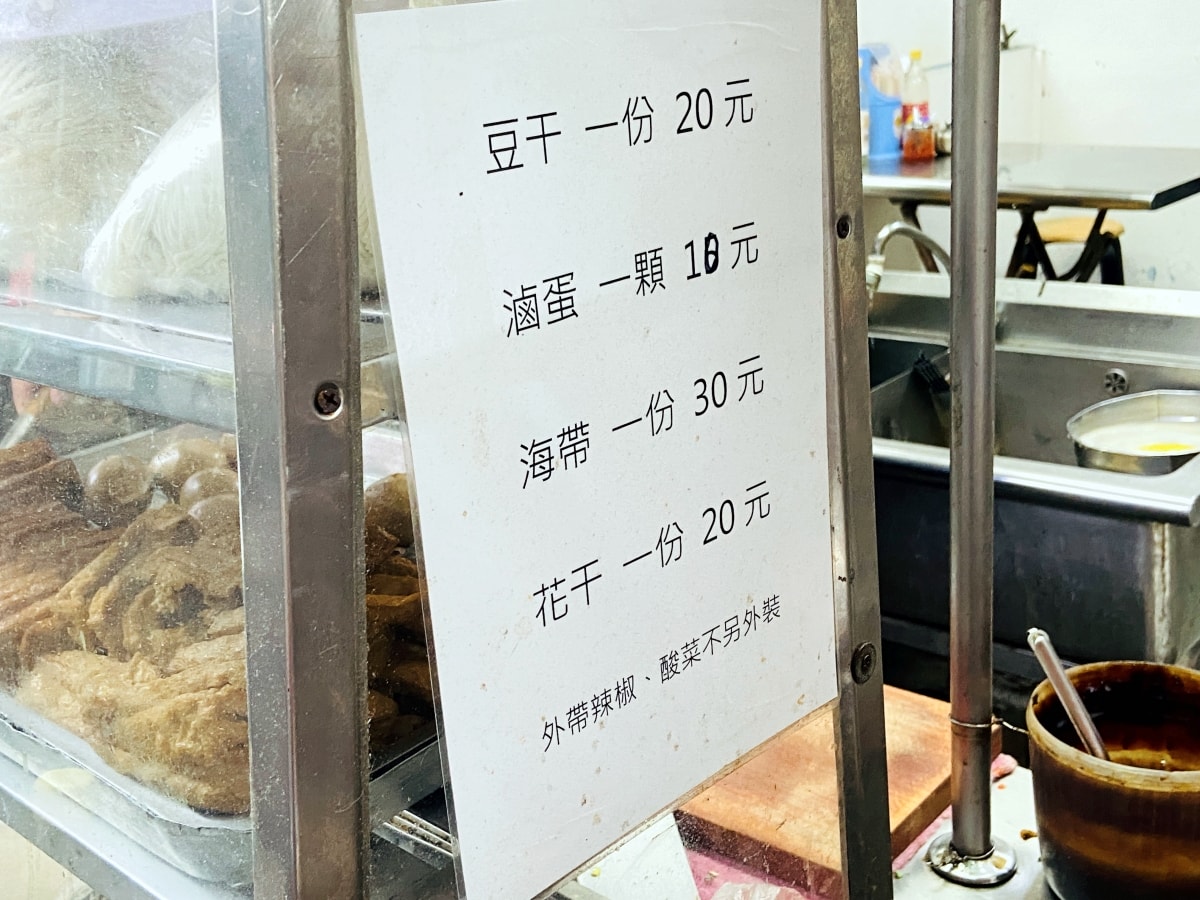 豆干 一份 20元
滷蛋 一顆 1元
海帶 一份 30元
花干 一份 20元
外帶辣椒、酸菜不另外裝